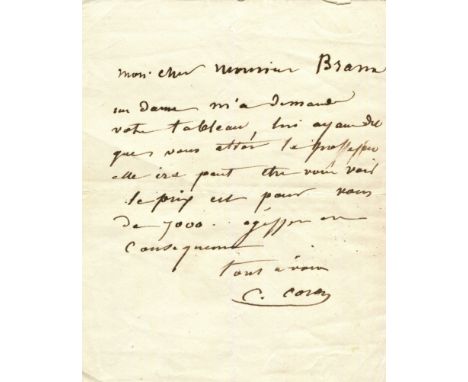 mon cher monsieur Brame
une dame m'a demandé
votre tableau, lui ayant dit
que vous étiez le possesseur
elle ira peut être vous voir
le prix est pour vous
de 7000.. agissez en
conséquence
tout à vous
C. Corot